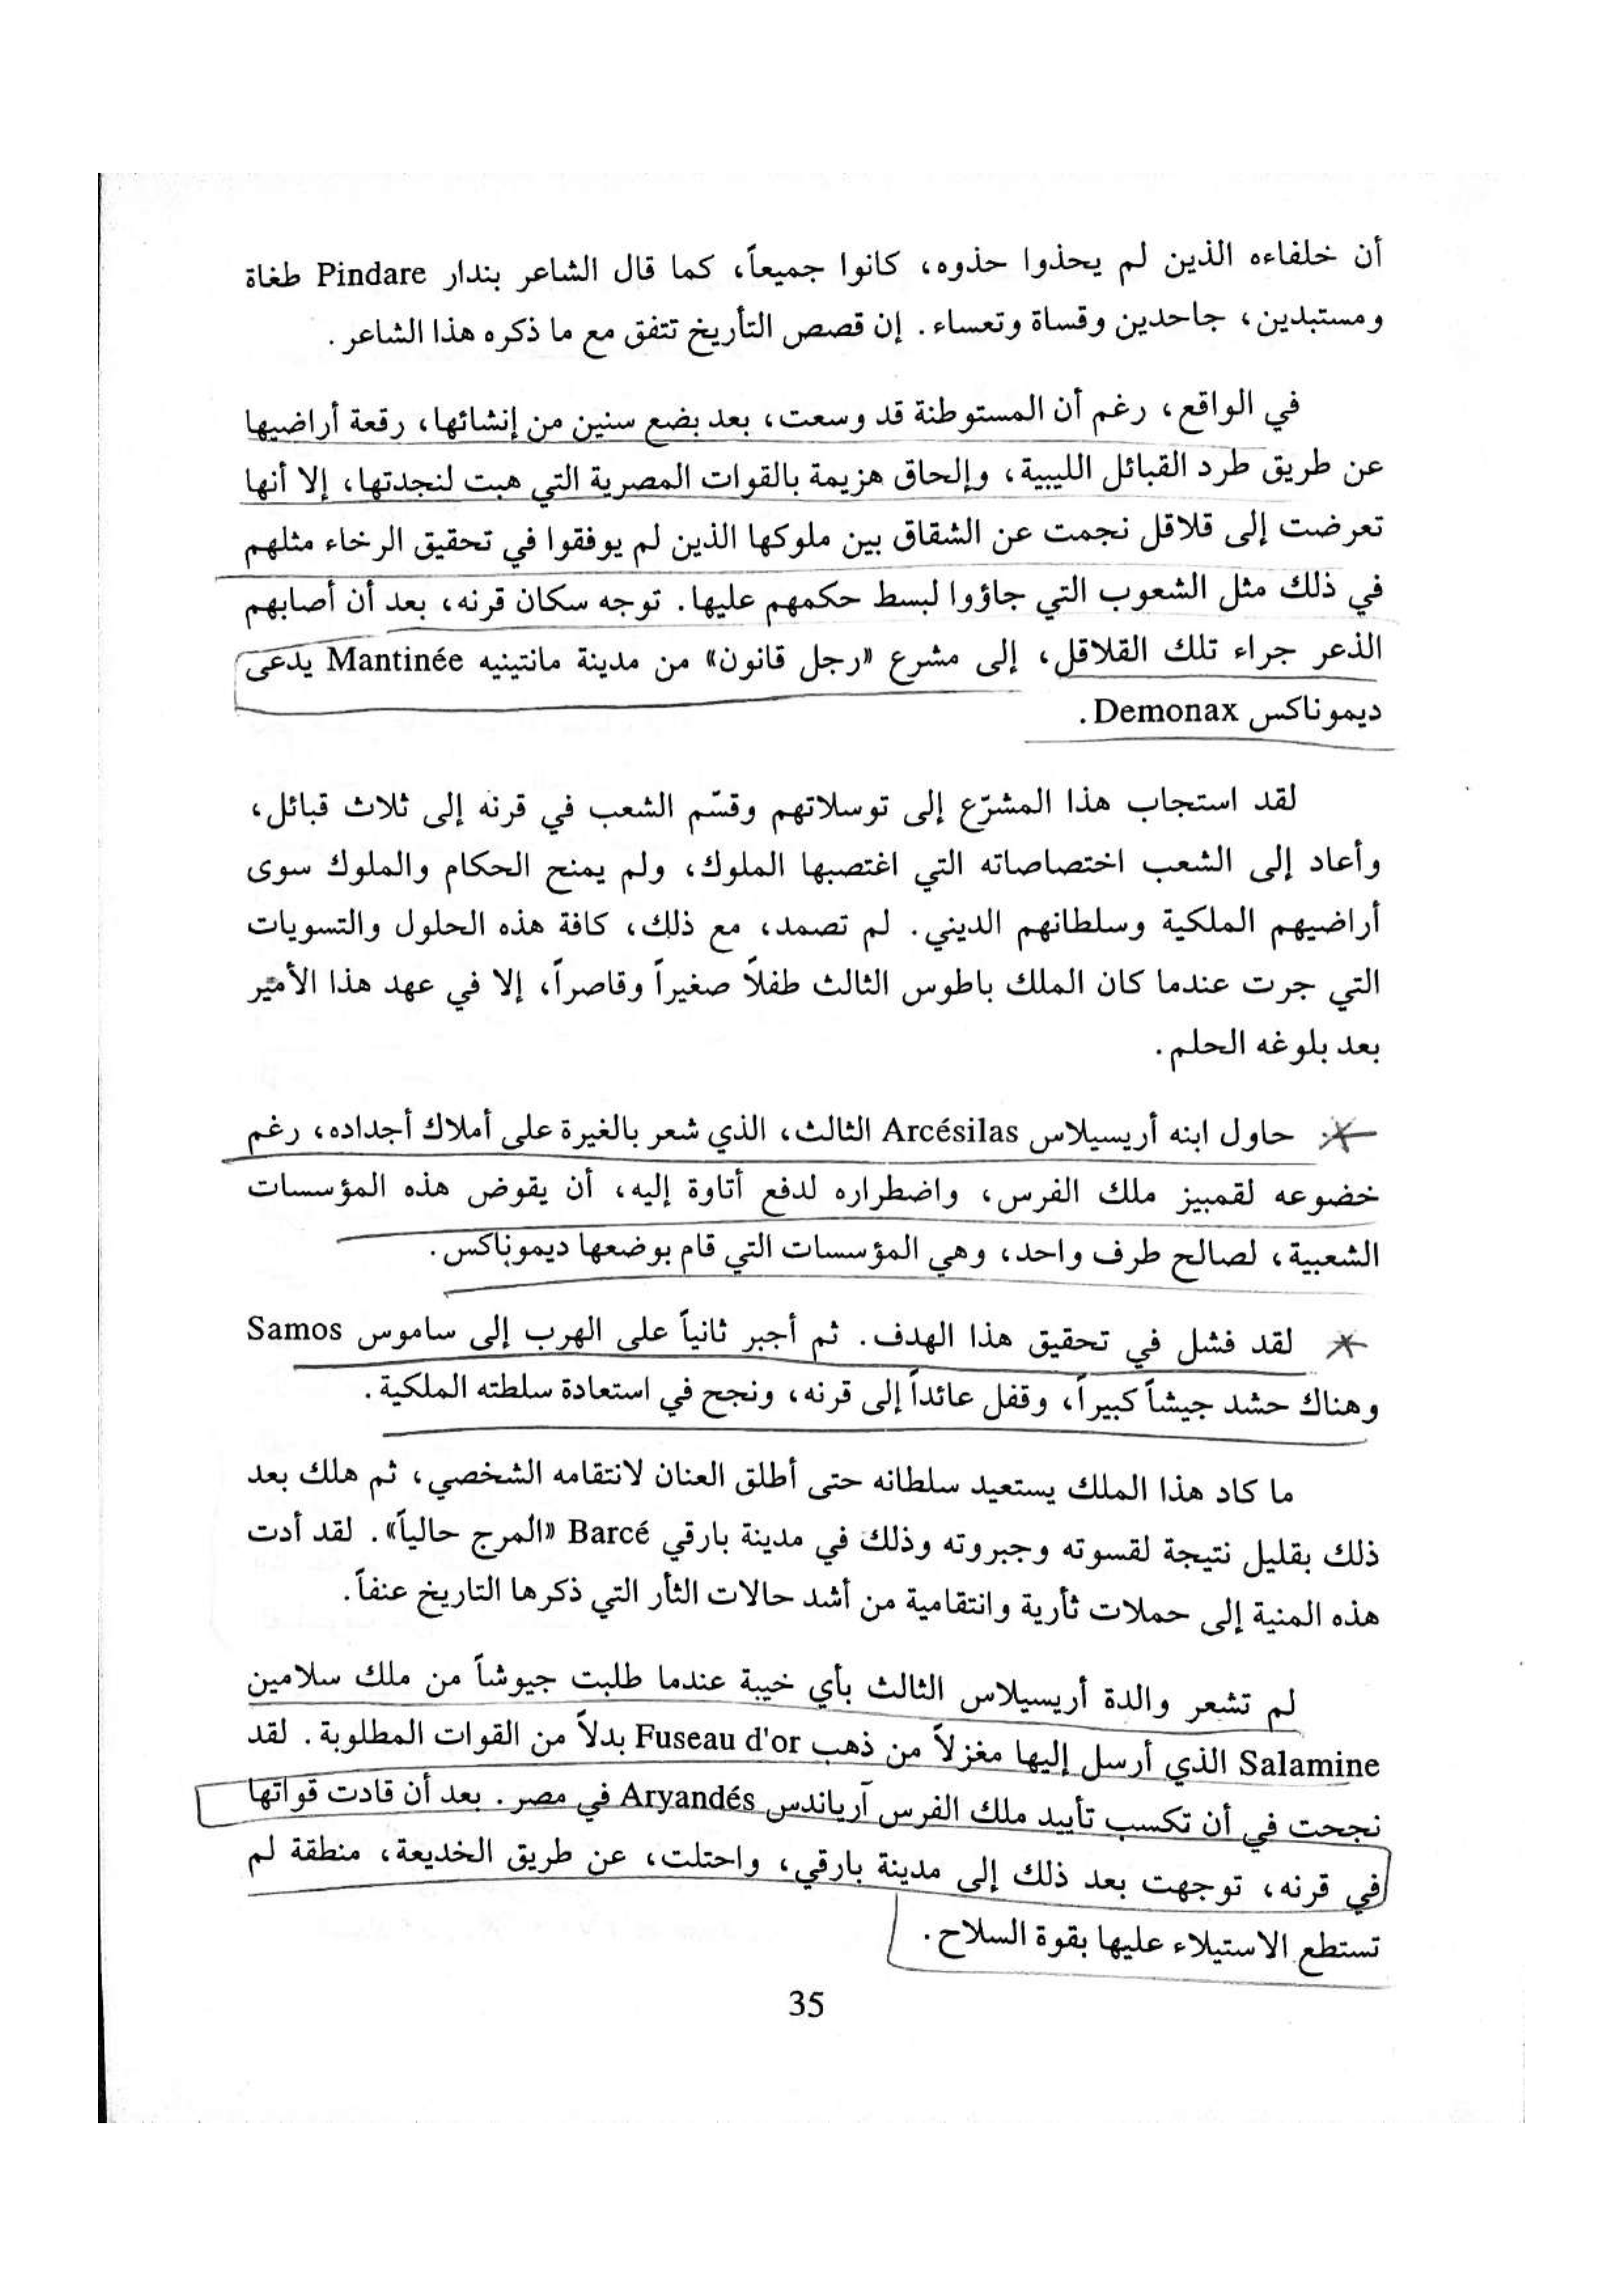 أن خلفاءه الذين لم يحذوا حذوه، كانوا جميعاً، كما قال الشاعر بندار Pindare طغاة
ومستبدين، جاحدين وقساة وتعساء. إن قصص التأريخ تتفق مع ما ذكره هذا الشاعر.
في الواقع، رغم أن المستوطنة قد وسعت، بعد بضع سنين من إنشائها، رقعة أراضيها
عن طريق طرد القبائل الليبية، وإلحاق هزيمة بالقوات المصرية التي هبت لنجدتها، إلا أنها
تعرضت إلى قلاقل نجمت عن الشقاق بين ملوكها الذين لم يوفقوا في تحقيق الرخاء مثلهم
في ذلك مثل الشعوب التي جاؤوا لبسط حكمهم عليها. توجه سكان قرنه، بعد أن أصابهم
الذعر جراء تلك القلاقل، إلى مشرع «رجل قانون» من مدينة مانتينيه Mantinée يدعى
ديموناكس Demonax.
لقد استجاب هذا المشرّع إلى توسلاتهم وقسّم الشعب في قرنه إلى ثلاث قبائل،
وأعاد إلى الشعب اختصاصاته التي اغتصبها الملوك، ولم يمنح الحكام والملوك سوى
أراضيهم الملكية وسلطانهم الديني. لم تصمد، مع ذلك، كافة هذه الحلول والتسويات
التي جرت عندما كان الملك باطوس الثالث طفلاً صغيراً وقاصراً، إلا في عهد هذا الأمير
بعد بلوغه الحلم.
حاول ابنه أريسيلاس Arcésilas الثالث، الذي شعر بالغيرة على أملاك أجداده، رغم
خضوعه لقمبيز ملك الفرس، واضطراره لدفع أتاوة إليه، أن يقوض هذه المؤسسات
الشعبية، لصالح طرف واحد، وهي المؤسسات التي قام بوضعها ديموناكس.
لقد فشل في تحقيق هذا الهدف. ثم أجبر ثانياً على الهرب إلى ساموس Samos
وهناك حشد جيشاً كبيراً، وقفل عائداً إلى قرنه، ونجح في استعادة سلطته الملكية.
ما كاد هذا الملك يستعيد سلطانه حتى أطلق العنان لانتقامه الشخصي، ثم هلك بعد
ذلك بقليل نتيجة لقسوته وجبروته وذلك في مدينة بارقي Barcé «المرج حالياً». لقد أدت
هذه المنية إلى حملات ثأرية وانتقامية من أشد حالات الثأر التي ذكرها التاريخ عنفاً.
لم تشعر والدة أريسيلاس الثالث بأي خيبة عندما طلبت جيوشاً من ملك سلامين
Salamine الذي أرسل إليها مغزلاً من ذهب Fuseau d'or بدلاً من القوات المطلوبة. لقد
نجحت في أن تكسب تأييد ملك الفرس آرياندس Aryandés في مصر. بعد أن قادت قواتها
في قرنه، توجهت بعد ذلك إلى مدينة بارقي، واحتلت، عن طريق الخديعة، منطقة لم
تستطع الاستيلاء عليها بقوة السلاح.
35